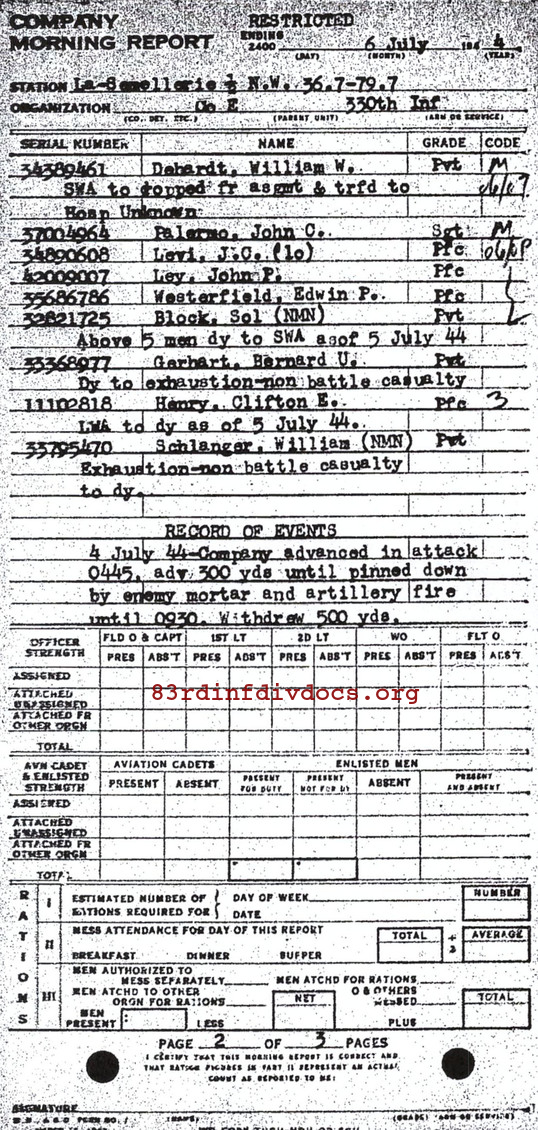 COMPANY RESTRICTED
MORNING REPORT ENDING 2400 6 July 194 4
(DAY) (MONTH) (YEAR)
STATION La-Semellerie ½ N.W. 36.7-79.7
ORGANIZATION Co E 330th Inf
(CO. DET. ETC.) (PARENT UNIT) (ARM OR SERVICE)
SERIAL NUMBER NAME GRADE CODE
34389461 Dehardt, William W. Pvt M
SWA to dropped fr asgmt & trfd to
Hosp Unknown
37004964 Palermo, John C. Sgt M
34890608 Levi, J.C. (Io) Pfc
42009007 Ley, John P. Pfc
35686786 Westerfield, Edwin P. Pfc
32821725 Block, Sol (NMN) Pvt
Above 5 men dy to SWA asof 5 July 44
33368977 Gerhart, Bernard U. Pvt
Dy to exhaustion-non battle casualty
11102818 Henry, Clifton E. Pfc 3
LWA to dy as of 5 July 44.
33795470 Schlanger, William (NMN) Pvt
Exhaustion-non battle casualty
to dy.
RECORD OF EVENTS
4 July 44-Company advanced in attack
0445, adv 300 yds until pinned down
by enemy mortar and artillery fire
until 0930. Withdrew 500 yds.
OFFICER STRENGTH FLD O & CAPT 1ST LT 2D LT WO FLT O
PRES ABS'T PRES ABS'T PRES ABS'T PRES ABS'T PRES ABS'T
ASSIGNED
ATTACHED UNASSIGNED
83rdinfdivdocs.org
ATTACHED FR OTHER ORGN
TOTAL
AVN CADET & ENLISTED STRENGTH AVIATION CADETS ENLISTED MEN
PRESENT ABSENT PRESENT FOR DUTY PRESENT NOT FOR DY ABSENT PRESENT AND ABSENT
ASSIGNED
ATTACHED UNASSIGNED
ATTACHED FR OTHER ORGN
TOTAL
RATIONS
I ESTIMATED NUMBER OF RATIONS REQUIRED FOR DAY OF WEEK NUMBER
DATE
II MESS ATTENDANCE FOR DAY OF THIS REPORT TOTAL ÷ 3 AVERAGE
BREAKFAST DINNER SUPPER
III MEN AUTHORIZED TO MESS SEPARATELY MEN ATCHD FOR RATIONS
MEN ATCHD TO OTHER ORGN FOR RATIONS NET O & OTHERS MESSED TOTAL
MEN PRESENT LESS PLUS
PAGE 2 OF 3 PAGES
I CERTIFY THAT THIS MORNING REPORT IS CORRECT AND
THAT RATION FIGURES IN PART II REPRESENT AN ACTUAL
COUNT AS REPORTED TO ME:
SIGNATURE
(NAME) (GRADE) (ARM OR SERVICE)